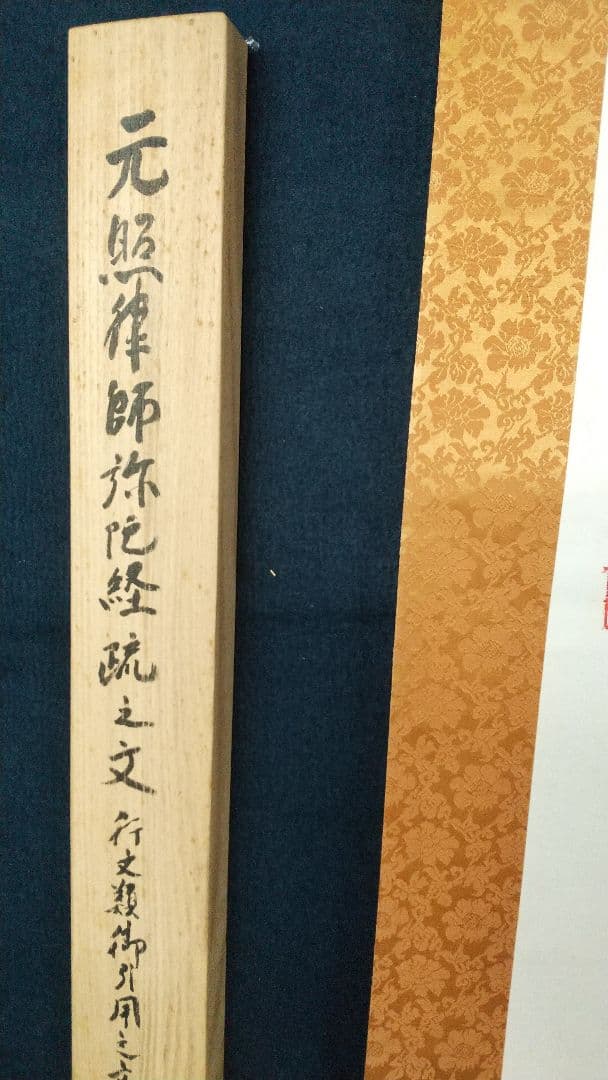 元照律師弥陀経疏之文 行文類御引用之文